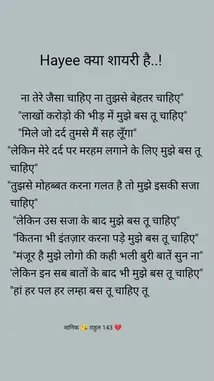 Hayee क्या शायरी है..!
ना तेरे जैसा चाहिए ना तुझसे बेहतर चाहिए"
"लाखों करोड़ो की भीड़ में मुझे बस तू चाहिए"
"मिले जो दर्द तुमसे मैं सह लूँगा"
"लेकिन मेरे दर्द पर मरहम लगाने के लिए मुझे बस तू
चाहिए"
"तुझसे मोहब्बत करना गलत है तो मुझे इसकी सजा
चाहिए"
"लेकिन उस सजा के बाद मुझे बस तू चाहिए"
"कितना भी इंतज़ार करना पड़े मुझे बस तू चाहिए"
"मंजूर है मुझे लोगो की कही भली बुरी बातें सुन ना"
'लेकीन इन सब बातों के बाद भी मुझे बस तू चाहिए"
"हां हर पल हर लम्हा बस तू चाहिए तू
मानिक 😘 राहुल 143 💔